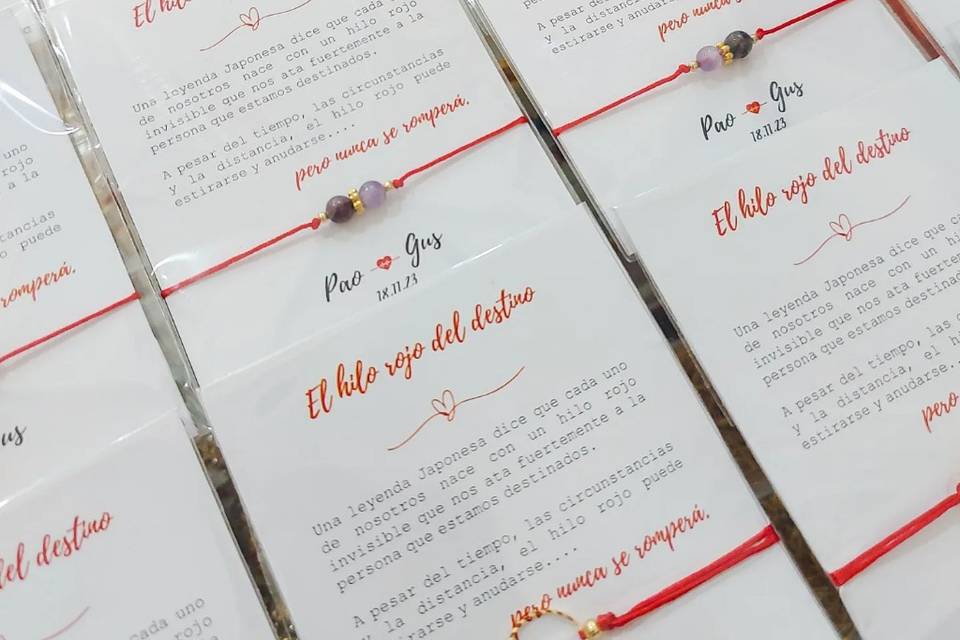 uno
rojo
a la
tancias
puede
romperá.
us
del destino
cada uno
rojo
El hilo
Una leyenda Japonesa dice que cada
de nosotros nace con un hilo
invisible que nos ata fuertemente a la
persona que estamos destinados.
A pesar del tiempo, las circunstancias
y la distancia, el hilo rojo puede
estirarse y anudarse....
pero nunca se romperá.
Pao Gus
18.11.23
El hilo rojo del destino
Una leyenda Japonesa dice que cada uno
de nosotros nace con un hilo rojo
invisible que nos ata fuertemente a la
persona que estamos destinados.
A pesar del tiempo, las circunstancias
y la distancia, el hilo rojo puede
estirarse y anudarse....
pero nunca se romperá.
A pesar de
y la distancia
estirarse y anudarse
pero nunca
Pao Gus
18.11.23
El hilo rojo del destino
Una leyenda Japonesa dice que
de nosotros nace con un
invisible que nos ata fuertemente
persona que estamos destinados
A pesar del tiempo, las
y la distancia, el
estirarse y anudarse...
pero